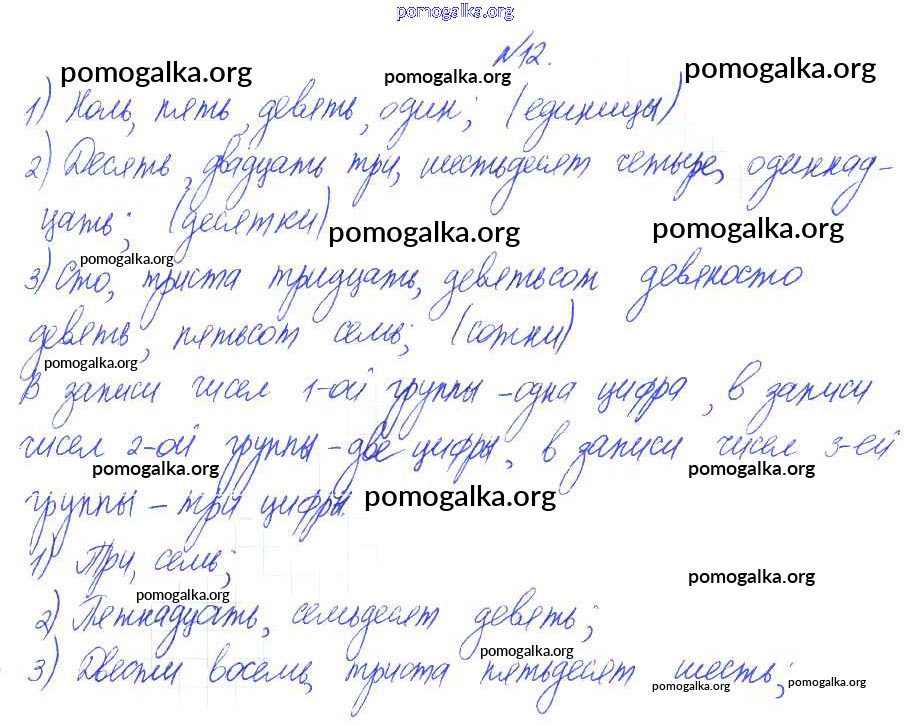 pomogalka.org
№12.
pomogalka.org pomogalka.org pomogalka.org
1) Ноль, пять, девять, один; (единицы)
2) Десять, двадцать три, шестьдесят четыре, одиннад-
цать; (десятки)
pomogalka.org pomogalka.org
pomogalka.org
3) Сто, триста тридцать, девятьсот девяносто
девять, пятьсот семь; (сотни)
pomogalka.org
В записи чисел 1-ой группы - одна цифра, в записи
чисел 2-ой группы - две цифры, в записи чисел 3-ей
pomogalka.org pomogalka.org
группы - три цифры.
pomogalka.org
1) Три, семь;
pomogalka.org
pomogalka.org
2) Петнадцать, семьдесят девять;
pomogalka.org
3) Двести восемь, триста пятьдесят шесть;
pomogalka.org pomogalka.org